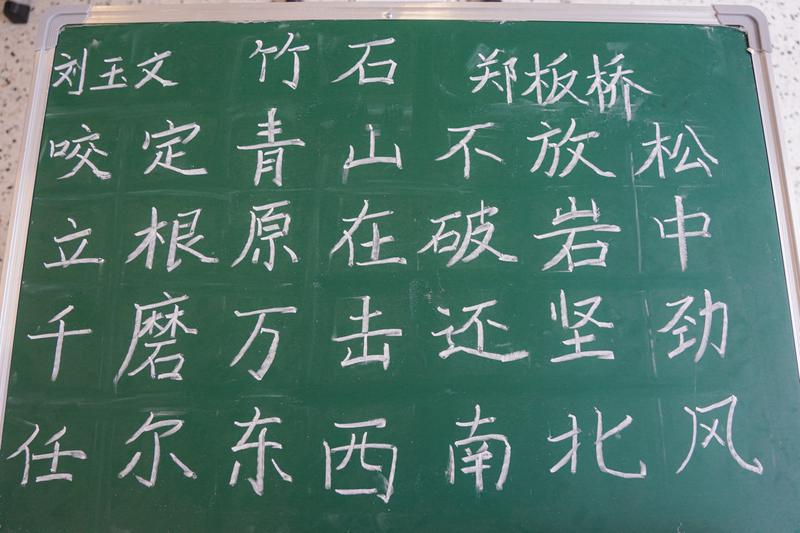 刘玉文 竹石 郑板桥
咬定青山不放松
立根原在破岩中
千磨万击还坚劲
任尔东西南北风